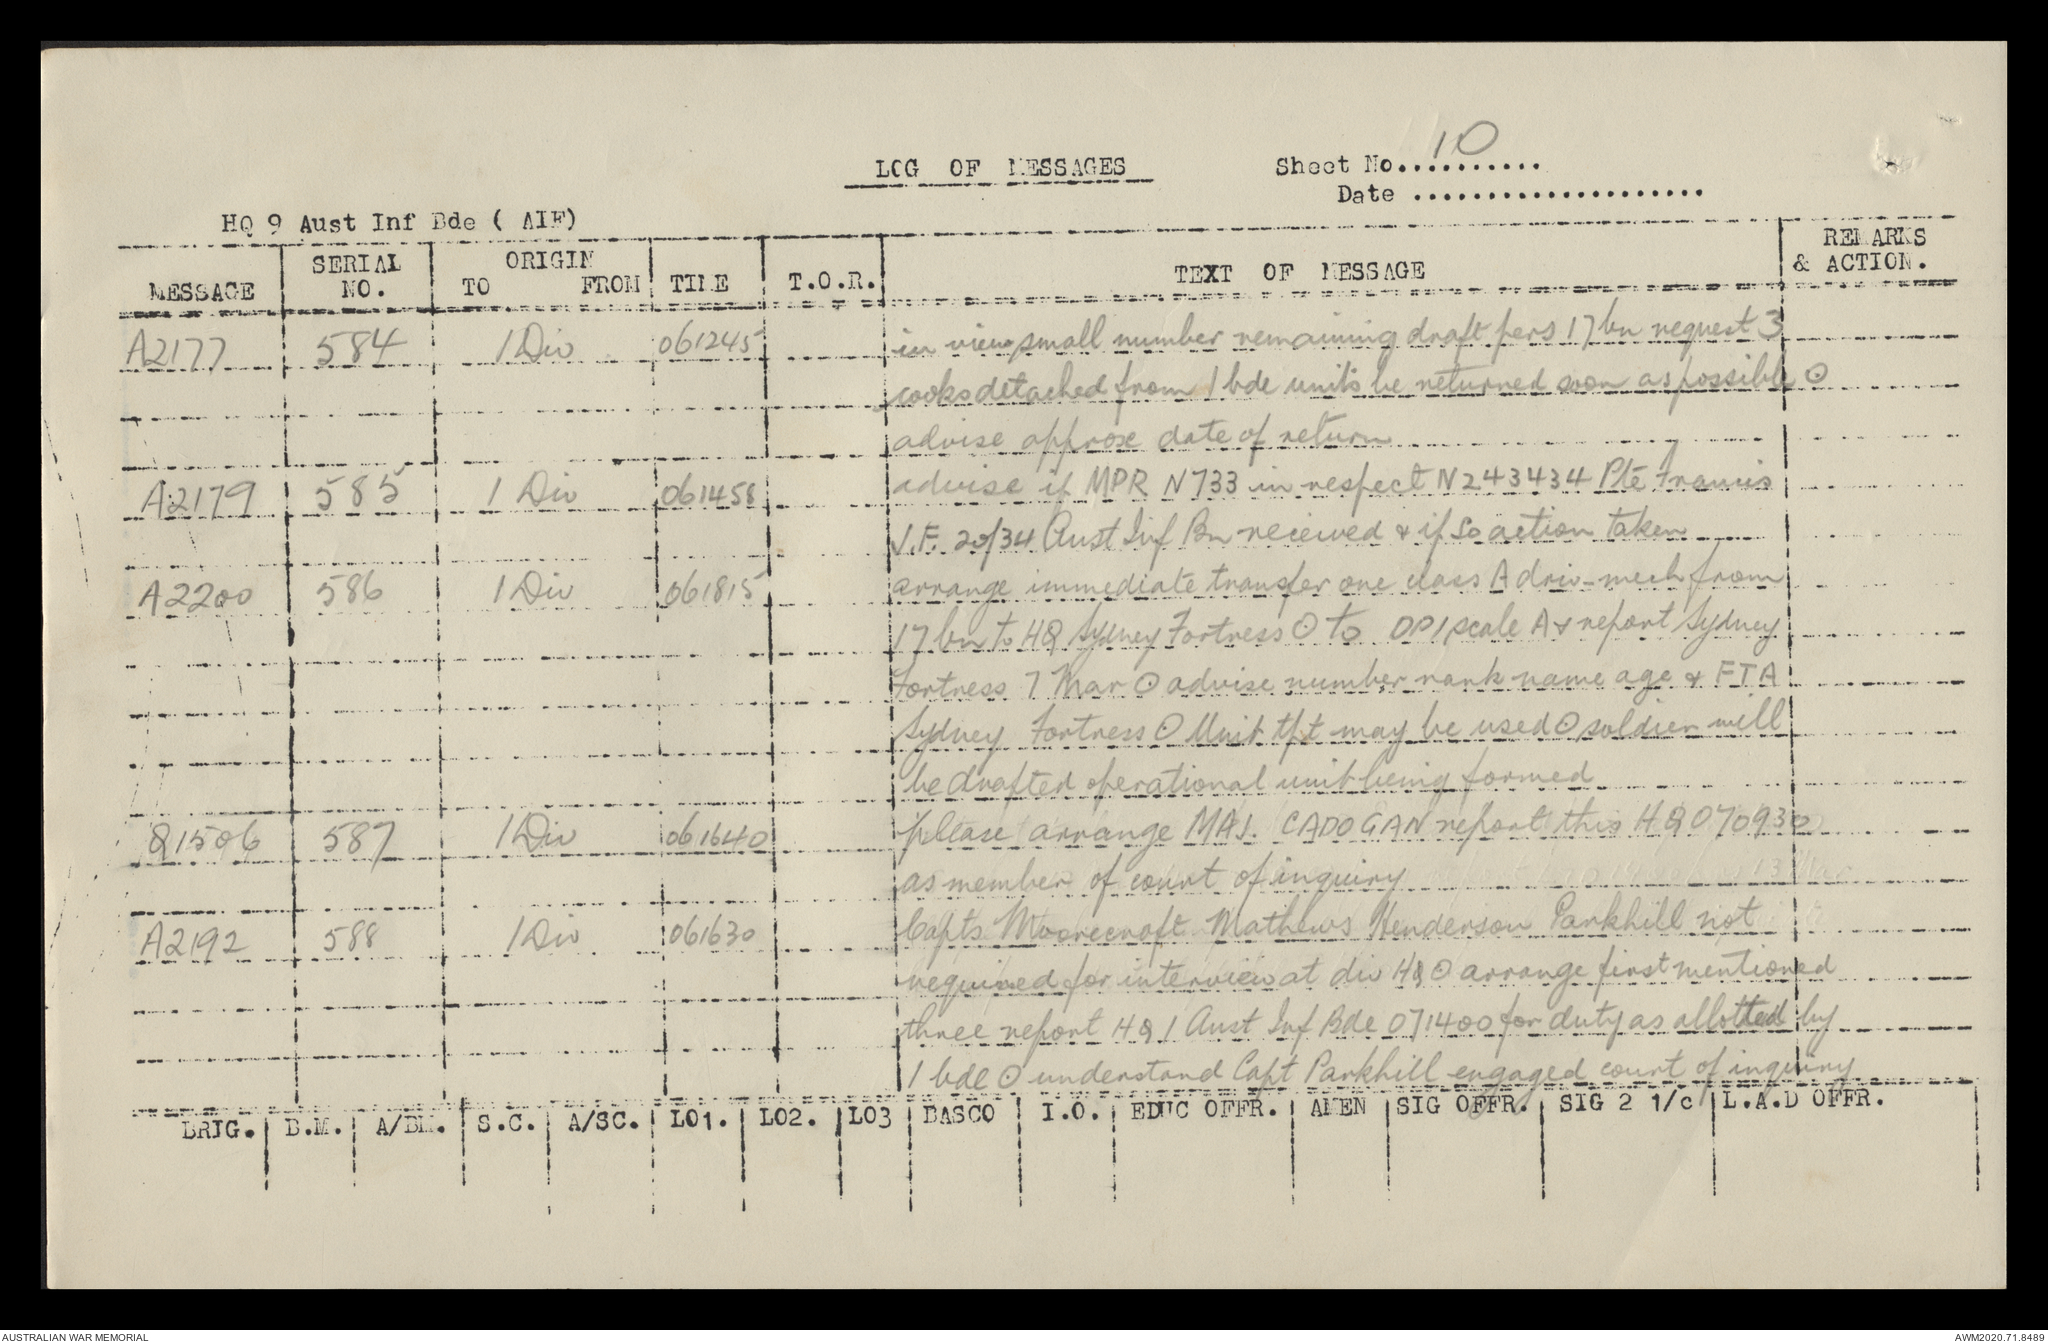 LOG OF MESSAGES
Sheet No. 10
Date
HQ 9 Aust Inf Bde ( AIF)
MESSAGE SERIAL NO. ORIGIN TO FROM TIME T.O.R. TEXT OF MESSAGE REMARKS & ACTION.
A2177 584 1 Div 061245 in view small number remaining draft pers 17 bn request 3
cooks detached from 1 bde units be returned soon as possible ⊙
advise approx date of return
A2179 585 1 Div 061458 advise if MPR N733 in respect N243434 Pte Francis
J.F. 20/34 Aust Inf Bn received & if so action taken
A2200 586 1 Div 061815 arrange immediate transfer one class A driv-mech from
17 bn to HQ Sydney Fortress ⊙ To DP1 scale A & report Sydney
Fortress 7 Mar ⊙ advise number rank name age & FTA
Sydney Fortress ⊙ Unit tpt may be used ⊙ soldier will
be drafted operational unit being formed
Q1506 587 1 Div 061640 please arrange MAJ. CADOGAN report this HQ 070930
as member of court of inquiry
A2192 588 1 Div 061630 Capts Moorecroft Mathews Henderson Parkhill not
required for interview at div HQ ⊙ arrange first mentioned
three report HQ 1 Aust Inf Bde 071400 for duty as allotted by
1 bde ⊙ understand Capt Parkhill engaged court of inquiry
BRIG. B.M. A/BM. S.C. A/SC. LO1. LO2. LO3 BASCO I.O. EDUC OFFR. AMEN SIG OFFR. SIG 2 1/c L.A.D OFFR.
AUSTRALIAN WAR MEMORIAL AWM2020.71.8489